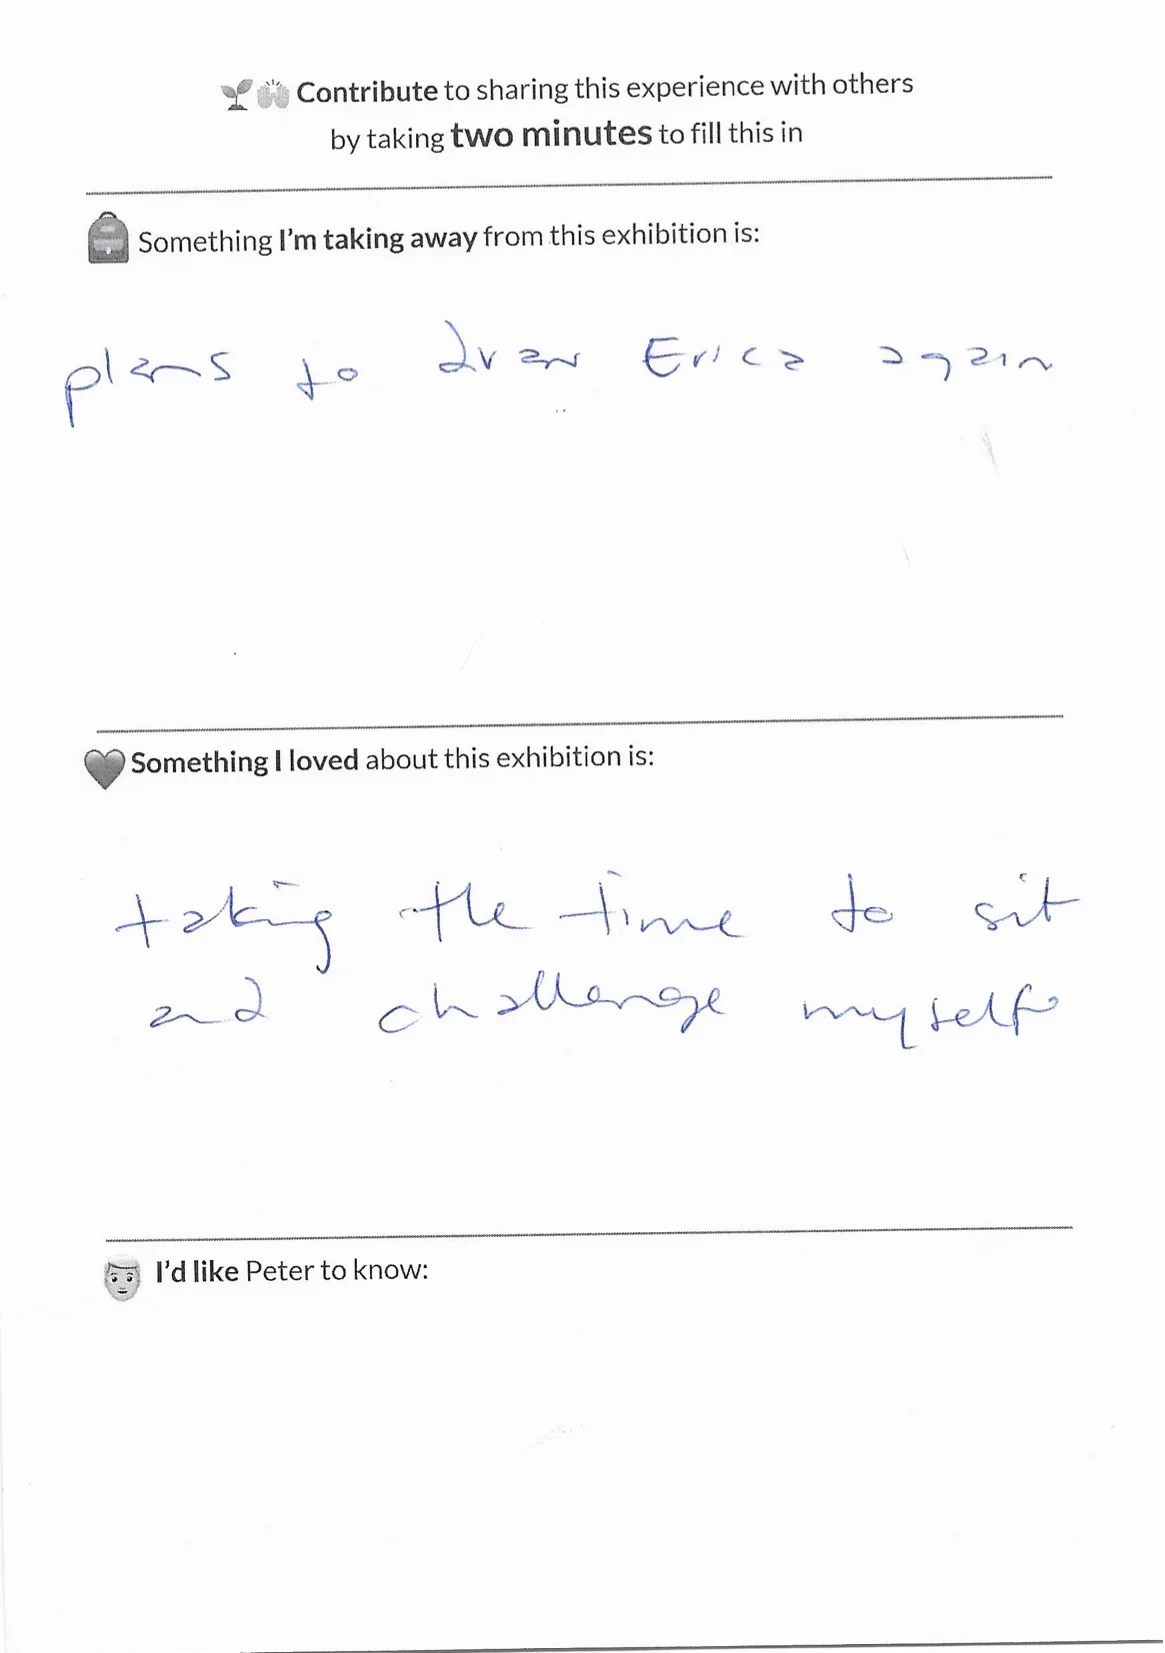 Contribute to sharing this experience with others
by taking two minutes to fill this in
Something I'm taking away from this exhibition is:
plans to draw Erica again
Something I loved about this exhibition is:
taking the time to sit
and challenge myself
I'd like Peter to know: